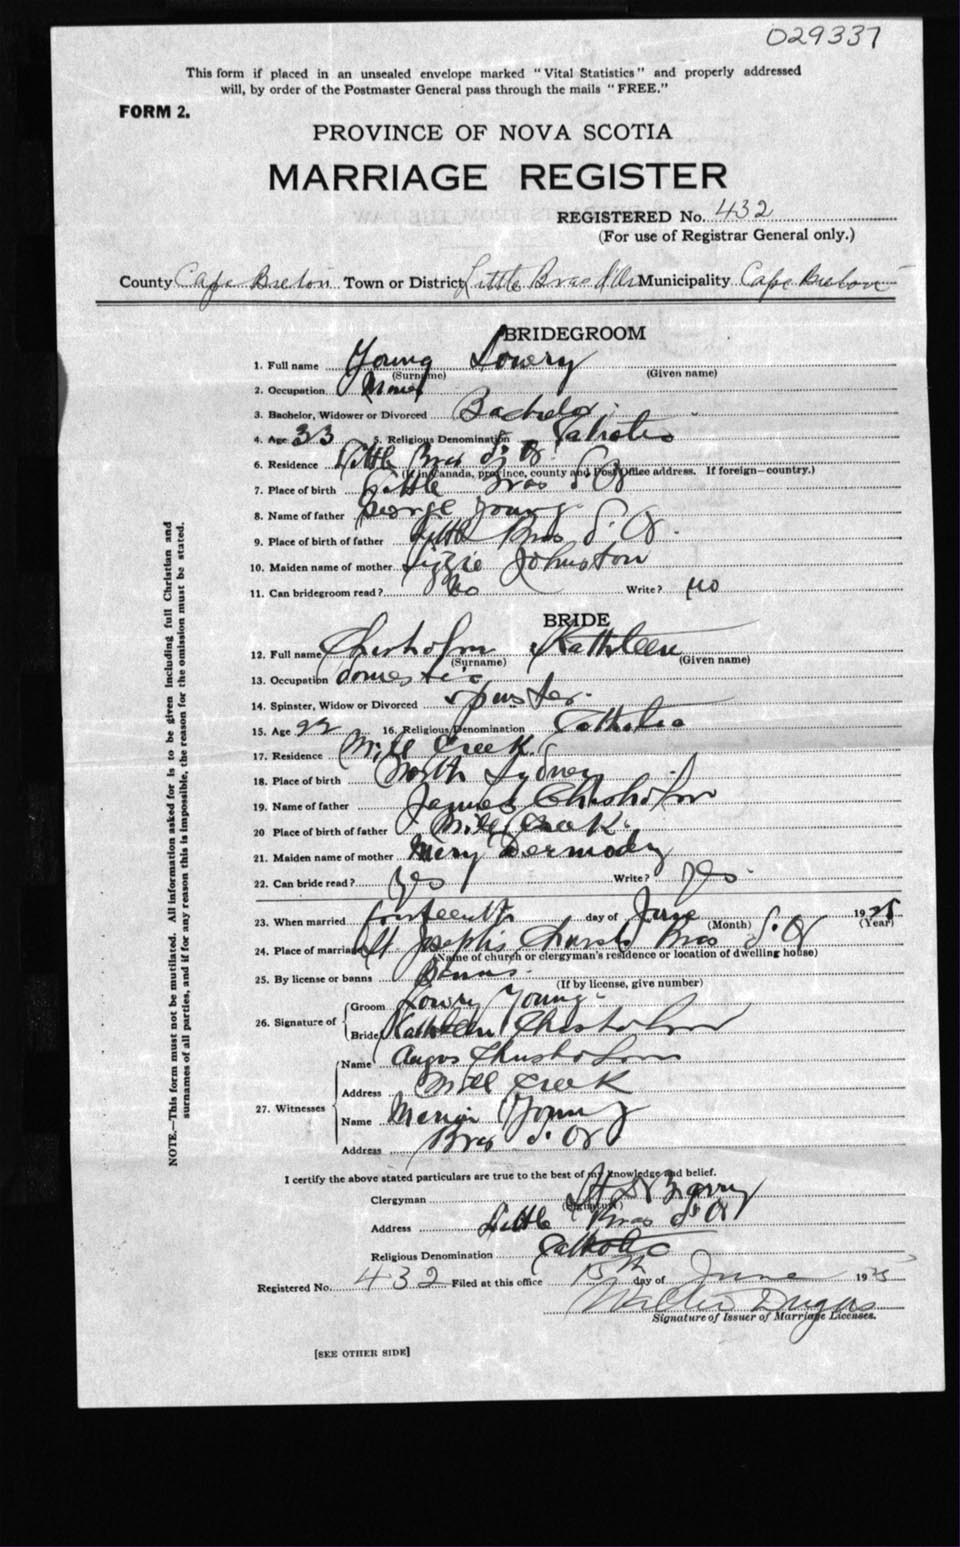 029337
This form if placed in an unsealed envelope marked "Vital Statistics" and properly addressed
will, by order of the Postmaster General pass through the mails "FREE."
FORM 2.
PROVINCE OF NOVA SCOTIA
MARRIAGE REGISTER
REGISTERED No. 432
(For use of Registrar General only.)
County Cape Breton Town or District Little Bras d'Or Municipality Cape Breton
BRIDEGROOM
1. Full name Young Lowery
(Surname) (Given name)
2. Occupation
3. Bachelor, Widower or Divorced Bachelor
4. Age 33 5. Religious Denomination
6. Residence Little Bras d'Or
(If in Canada, province, county and Post Office address. If foreign—country.)
7. Place of birth Little Bras d'Or
8. Name of father George Young
9. Place of birth of father Little Bras d'Or
10. Maiden name of mother Lizzie Johnston
11. Can bridegroom read? No Write? no
BRIDE
12. Full name Chisholm Kathleen
(Surname) (Given name)
13. Occupation domestic
14. Spinster, Widow or Divorced spinster
15. Age 22 16. Religious Denomination Catholic
17. Residence Mill Creek
18. Place of birth North Sydney
19. Name of father James Chisholm
20 Place of birth of father Mill Creek
21. Maiden name of mother Mary Dermody
22. Can bride read? yes Write? yes
23. When married fourteenth day of June 1925
(Month) (Year)
24. Place of marriage St Joseph's Church Bras d'Or
(Name of church or clergyman's residence or location of dwelling house)
25. By license or banns Banns
(If by license, give number)
26. Signature of Groom Lowry Young
Bride Kathleen Chisholm
27. Witnesses Name Angus Chisholm
Address Mill Creek
Name Young
Address Bras d'Or
I certify the above stated particulars are true to the best of my knowledge and belief.
Clergyman Barry
(Signature)
Address Little Bras d'Or
Religious Denomination Catholic
Registered No. 432 Filed at this office 15th day of June 1925
Walter Dugas
Signature of Issuer of Marriage Licenses.
[SEE OTHER SIDE]
NOTE.—This form must not be mutilated. All information asked for is to be given including full Christian and
surnames of all parties, and if for any reason this is impossible, the reason for the omission must be stated.